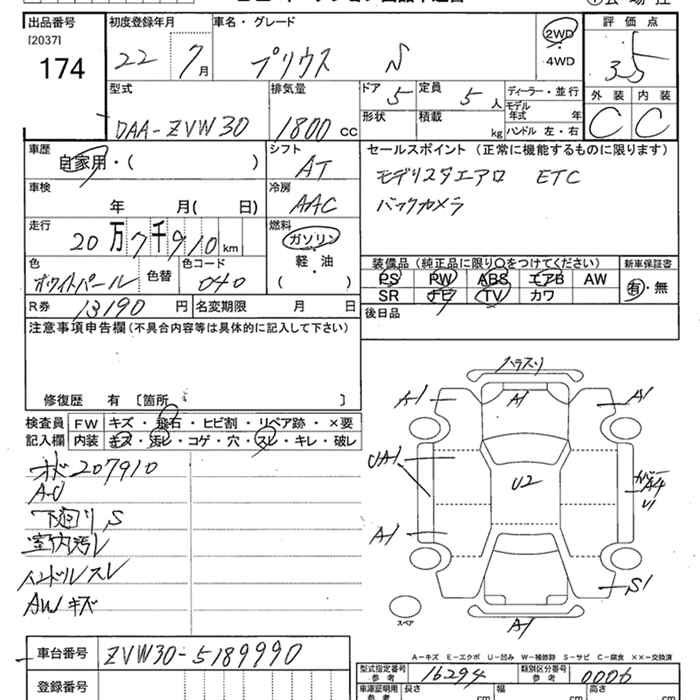 出品番号 初度登録年月 車名・グレード 評価点
[2037]
174 22 7月 プリウス S 2WD ・ 4WD 3.5
型式 排気量 ドア 5 定員 5人 ディーラー・並行 外装 内装
DAA-ZVW30 1800cc 形状 積載 kg モデル年式 年 C C
ハンドル 左・右
車歴 シフト セールスポイント(正常に機能するものに限ります)
自家用・( ) AT モデリスタエアロ ETC
車検 冷房 バックカメラ
年 月( 日) AAC
走行 燃料
20万7千910km ガソリン
軽・油
( )
色 色替 色コード 装備品(純正品に限り○をつけてください) 新車保証書
ホワイトパール 040 PS PW ABS エアB AW 有・無
SR ナビ TV カワ
R券 13190円 名変期限 月 日 後日品
注意事項申告欄(不具合内容等は具体的に記入して下さい)
修復歴 有 [箇所 ]
検査員記入欄 FW キズ・飛石・ヒビ割・リペア跡・×要
内装 キズ・汚レ・コゲ・穴・スレ・キレ・破レ
オド207910
下廻り S
室内汚レ
ハンドルスレ
AWキズ
A-1 A1 A1
UA1 U2 A4
U1
A-1 S1
A1
スペア
A-キズ E-エクボ U-凹み W-補修跡 S-サビ C-腐食 ××-交換済
車台番号 ZVW30-5189990
登録番号
型式指定番号 参考 16294 類別区分番号 参考 0006
車庫証明用 参考 長さ cm 幅 cm 高さ cm